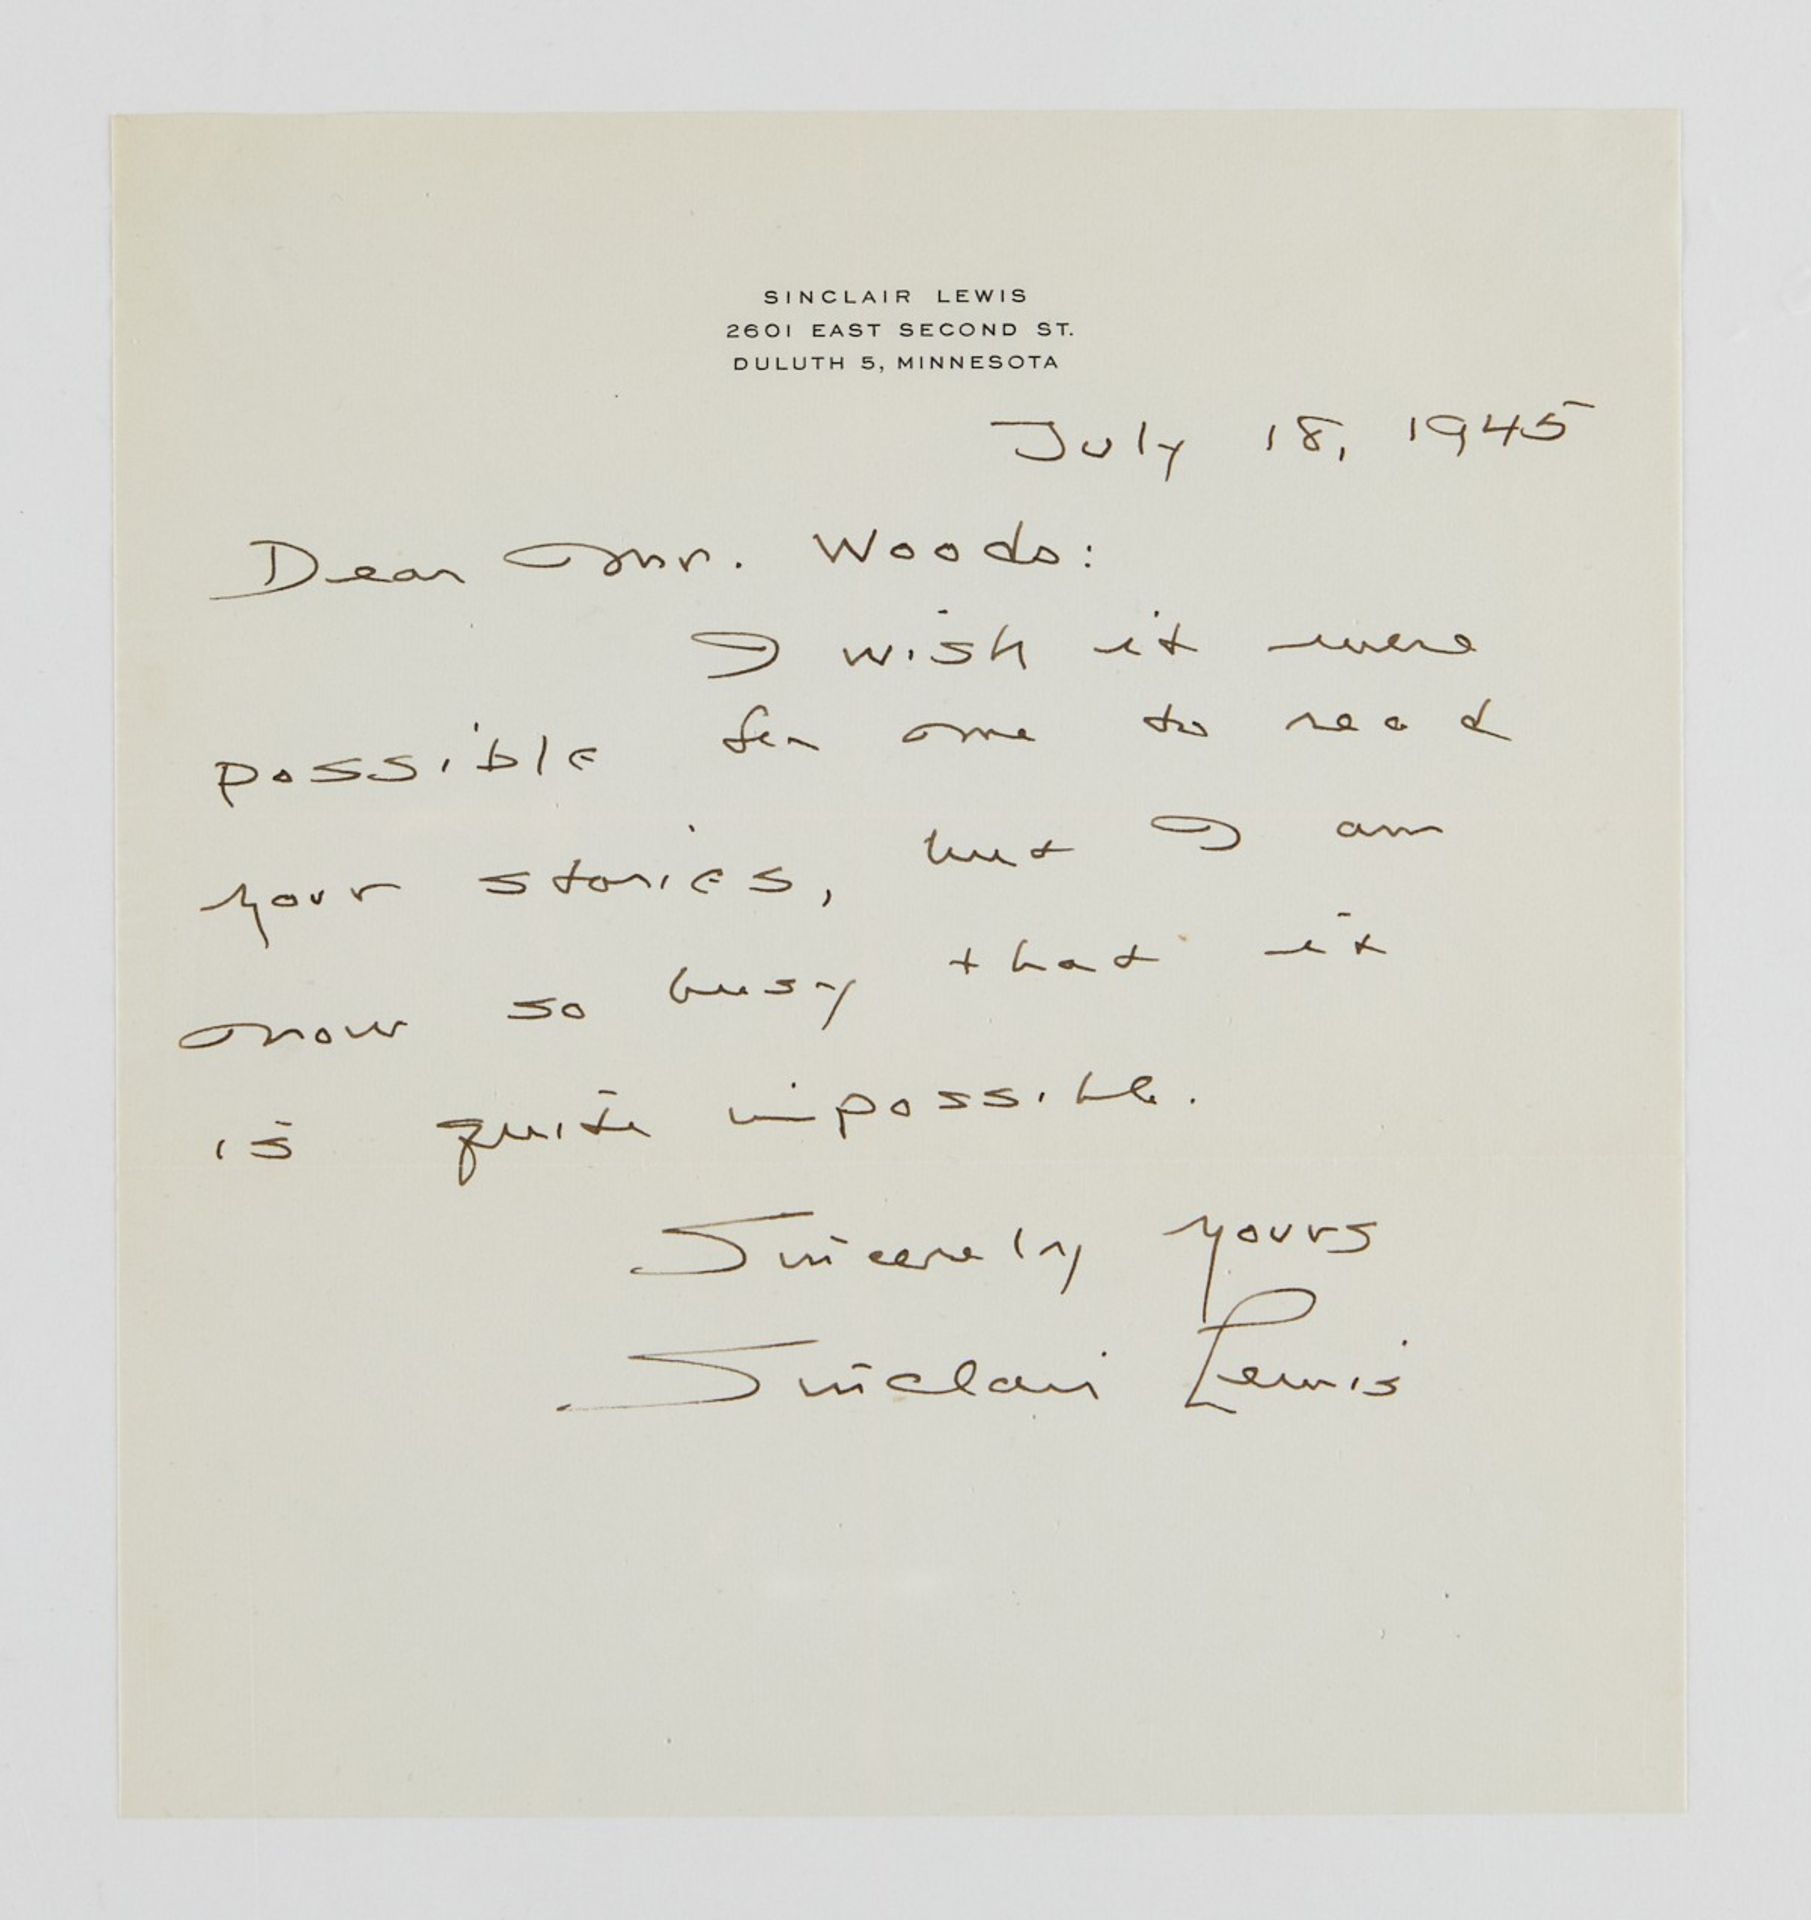 SINCLAIR LEWIS
2601 EAST SECOND ST.
DULUTH 5, MINNESOTA
July 18, 1945
Dear Mr. Woods:
I wish it were
possible for me to read
your stories, but I am
now so busy that it
is quite impossible.
Sincerely yours
Sinclair Lewis